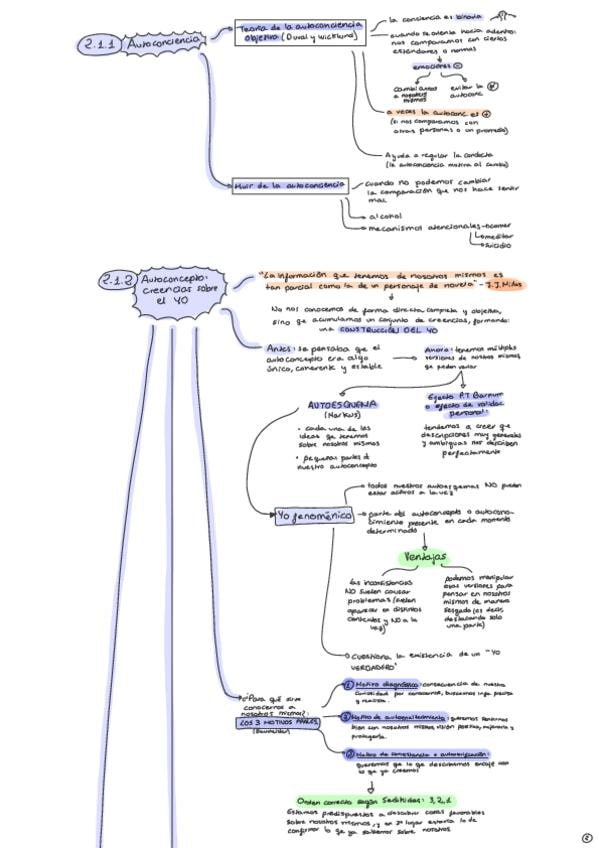 2.1.1 Autoconciencia
Teoría de la autoconciencia
objetiva (Duval y Wicklund)
la conciencia es binaria
cuando se orienta hacia adentro:
nos comparamos con ciertos
estándares o normas
emociones
cambiarnos
a nosotros
mismos
evitar la
autoconc.
a veces la autoconc es +
(si nos comparamos con
otras personas o un promedio)
Ayuda a regular la conducta
(la autoconciencia motiva al cambio)
Huir de la autoconciencia
cuando no podemos cambiar
la comparación que nos hace sentir
mal
alcohol
mecanismos atencionales
meditar
suicidio
2.1.2 Autoconcepto:
creencias sobre
el YO
"La información que tenemos de nosotros mismos es
tan parcial como la de un personaje de novela" -
No nos conocemos de forma directa, completa y objetiva,
sino que acumulamos un conjunto de creencias, formando:
una CONSTRUCCIÓN DEL YO
Antes: se pensaba que el
autoconcepto era algo
único, coherente y estable
Ahora: tenemos múltiples
versiones de nosotros mismos
que pueden variar
AUTOESQUEMA
(Markus)
• cada una de las
ideas que tenemos
sobre nosotros mismos
• pequeñas partes de
nuestro autoconcepto
Efecto P.T Barnum
o efecto de validac
personal:
tendemos a creer que
descripciones muy generales
y ambiguas nos describen
perfectamente
Yo fenoménico
todos nuestros autoesquemas NO pueden
estar activos a la vez
parte del autoconcepto o autocono-
cimiento presente en cada momento
determinado
Ventajas
las inconsistencias
NO suelen causar
problemas (suelen
aparecer en distintos
contextos y NO a la
vez)
podemos manipular
esas versiones para
pensar en nosotros
mismos de manera
sesgada (es decir,
destacando solo
una parte)
cuestiona la existencia de un "YO
VERDADERO"
¿Para qué sirve
conocernos a
nosotros mismos?:
LOS 3 MOTIVOS PPALES.
(Baumeister)
1 Motivo diagnóstico: consecuencia de nuestra
curiosidad por conocernos, buscamos info precisa
y realista.
2 Motivo de autoensalzamiento: queremos sentirnos
bien con nosotros mismos, visión positiva, mejorarla y
protegerla.
3 Motivo de consistencia o autoverificación:
queremos que lo que descubramos encaje con
lo que ya creemos
Orden correcto según Sedikides: 3, 2, 1
Estamos predispuestos a descubrir cosas favorables
sobre nosotros mismos, y en 2º lugar estaría la de
confirmar lo que ya sabemos sobre nosotros
2